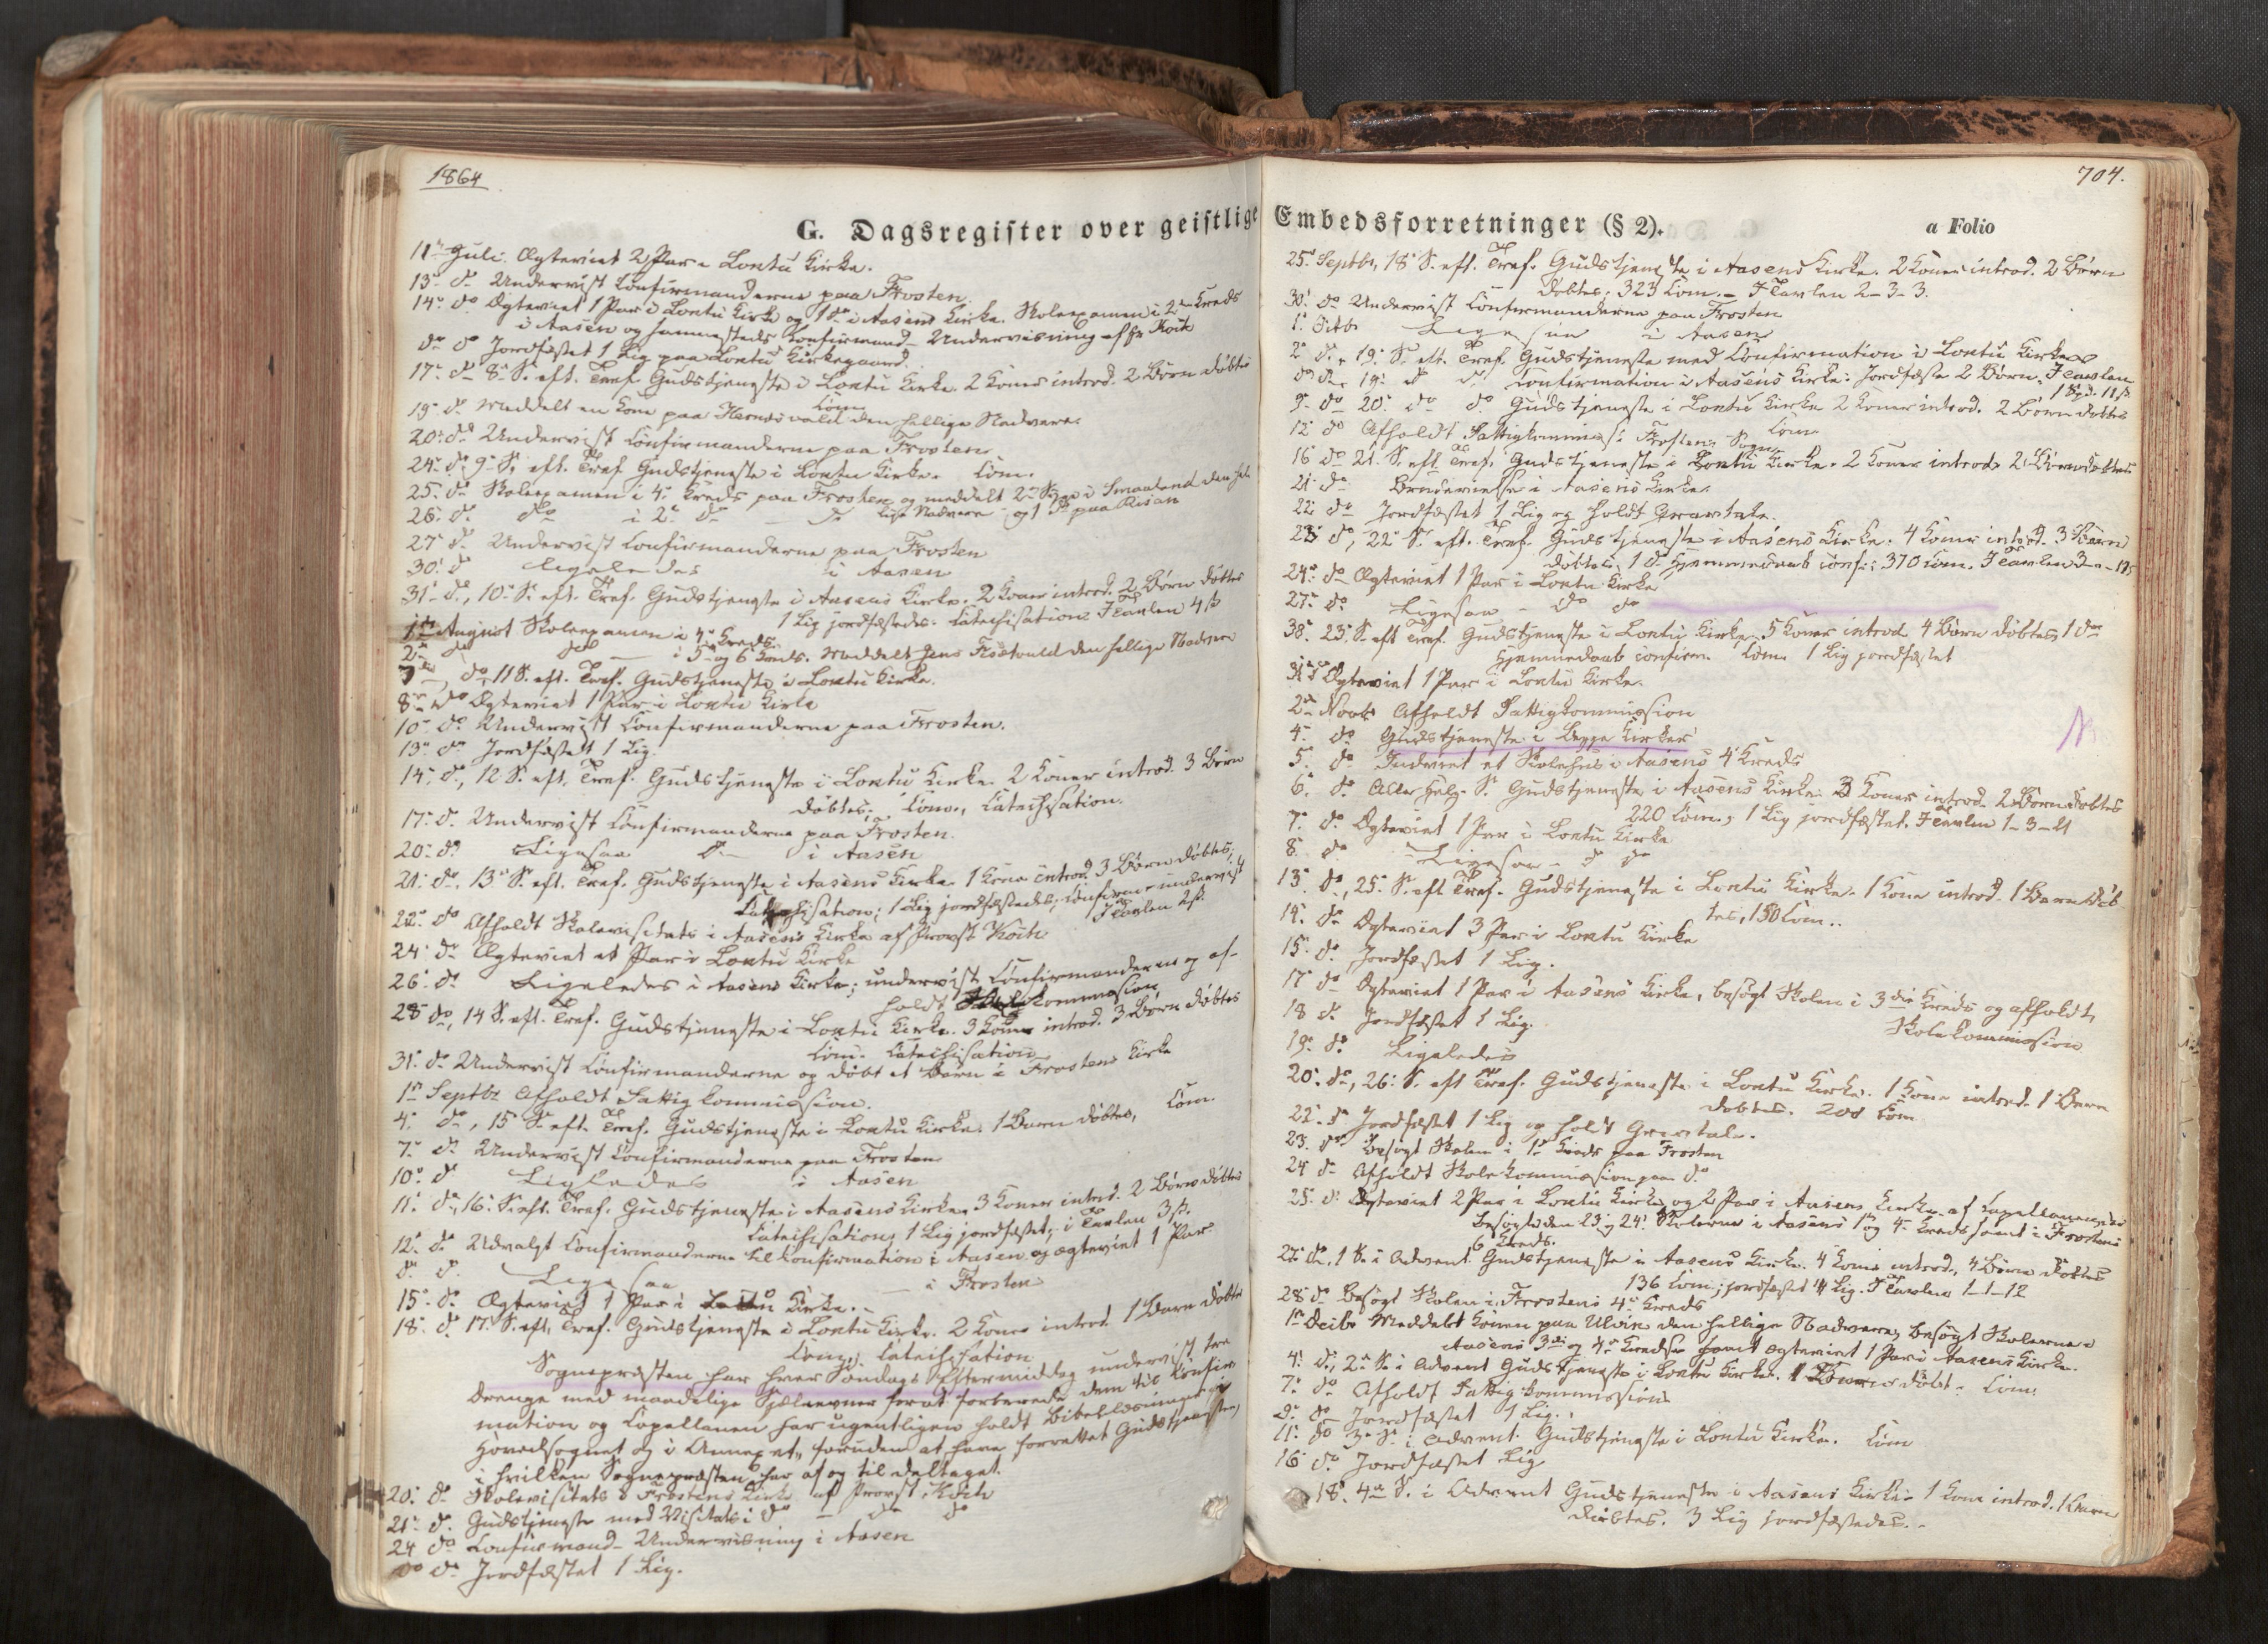 1864
G. Dagsregister over geistlige
11te Juli. Ægteviet 2 Par i Logtu Kirke.
13de do Underviist Confirmanderne paa Frosten.
14de do Ægteviet 1 Par i Logtu Kirke og 1 do i Aasens Kirke. Skoleexamen i 2den Kreds
i Aasen og sammesteds Confirmand-Underviisning af Hr Koch
do do Jordfæstet 1 Lig paa Logtu Kirkegaard.
17de do 8de S. eft. Tref. Gudstjeneste i Logtu Kirke. 2 Koner introd. 2 Børn døbtes
Com.
19de do Meddelt en Kone paa den hellige Nadvere.
20de do Underviist Confirmanderne paa Frosten
24de do 9de S. eft. Tref. Gudstjeneste i Logtu Kirke. Com.
25de do Skoleexamen i 4de Kreds paa Frosten og meddelt 2de Syge i Smaaland den hel-
26de do do i 2den do do lige Nadvere og 1 do paa
27de do Underviist Confirmanderne paa Frosten
30te do ligeledes i Aasen
31te do, 10de S. eft. Tref. Gudstjeneste i Aasens Kirke. 2 Koner introd. 2 Børn døbtes
1 Lig jordfæstedes. Catechisation. I Tavlen 4 ß
1ste August Skoleexamen i 4de Kreds.
2den do do i 5te og 6 Kreds. Meddelt Jens den hellige Nadvere
7de do, 11 S. eft. Tref. Gudstjeneste i Logtu Kirke.
8de do Ægteviet 1 Par i Logtu Kirke
10de do Underviist Confirmanderne paa Frosten.
13de do Jordfæstet 1 Lig.
14de do, 12 S. eft. Tref. Gudstjeneste i Logtu Kirke. 2 Koner introd. 3 Børn
døbtes. Com., Catechisation.
17de do Underviist Confirmanderne paa Frosten.
20de do Ligesaa do i Aasen
21de do, 13de S. eft. Tref. Gudstjeneste i Aasens Kirke. 1 Kone introd. 3 Børn døbtes;
Catechisation; 1 Lig jordfæstedes; Confirm. underviist
I Tavlen 2 ß.
22de do Afholdt Skolevisitats i Aasens Kirke af Provst Koch
24de do Ægteviet et Par i Logtu Kirke
26de do Ligeledes i Aasens Kirke; underviist Confirmanderne og af-
holdt kommission
28de do, 14 S. eft. Tref. Gudstjeneste i Logtu Kirke. 3 Koner introd. 3 Børn døbtes
Com. Catechisation
31te do Underviist Confirmanderne og døbt et Barn i Frostens Kirke
1ste Septbr Afholdt Fattigkommission.
4de do, 15 S. eft. Tref. Gudstjeneste i Logtu Kirke. 1 Barn døbtes, Com.
7de do Underviist Confirmanderne paa Frosten
10de do Ligeledes i Aasen
11te do, 16de S. eft. Tref. Gudstjeneste i Aasens Kirke. 3 Koner introd. 2 Børn døbtes
Catechisation; 1 Lig jordfæstet; i Tavlen 3 ß.
12te do Udvalgt Confirmanderne til Konfirmation i Aasen og ægteviet 1 Par
do do Ligesaa i Frosten
15de do Ægteviet 1 Par i Logtu Kirke.
18de do 17de S. eft. Tref. Gudstjeneste i Logtu Kirke. 2 Koner introd. 1 Barn døbtes
Com.; Catechisation
Sognepræsten har hver Søndags Eftermiddag underviist tre
Drenge med maadelige Sjælsevner forat forberede dem til Konfir-
mation og Capellanen har ugentligen holdt Bibellæsning i
Hovedsognet og i Annexet, foruden at have forrettet Gudstjenesten,
i hvilken Sognepræsten har af og til deltaget.
20de do Skolevisitats i Frostens Kirke af Provst Koch
21de do Gudstjeneste med Visitats i do do do
24 do Confirmand-Underviisning i Aasen
do do Jordfæstet 1 Lig.
704.
Embedsforretninger (§ 2).
a Folio
25de Septbr, 18de S. eft. Tref. Gudstjeneste i Aasens Kirke. 2 Koner introd. 2 Børn
døbtes. 323 Com. I Tavlen 2-3-3.
30te do Underviist Confirmanderne paa Frosten
1ste Octbr Ligesaa i Aasen
2den do, 19de S. eft. Tref. Gudstjeneste med Confirmation i Logtu Kirke
do do, 19de do do Confirmation i Aasens Kirke. Jordfæstet 2 Børn. I Tavlen
1 Spd. 11 ß
9de do 20de do do Gudstjeneste i Logtu Kirke 2 Koner introd. 2 Børn døbtes
Com.
12te do Afholdt Fattigkommiss. i Frostens Sogn
16de do 21 S. eft. Tref. Gudstjeneste i Logtu Kirke. 2 Koner introd. 2 Børn døbtes
21de do i Aasens Kirke.
22de do Jordfæstet 1 Lig og holdt Gravtale.
23de do, 22de S. eft. Tref. Gudstjeneste i Aasens Kirke. 4 Koner introd. 3 Børn
døbtes, 1 do Hjemmedaab conf.; 310 Com. I Tavlen
24de do Ægteviet 1 Par i Logtu Kirke
27de do Ligesaa do do
30te 23de S. eft. Tref. Gudstjeneste i Logtu Kirke. 5 Koner introd. 4 Børn døbtes, 1 do
Hjemmedaab confirm. Com. 1 Lig jordfæstet
31te do Ægteviet 1 Par i Logtu Kirke.
2den Novbr Afholdt Fattigkommission
4de do Gudstjeneste i begge Kirker
5te do Indviet et Skolehus i Aasens 4de Kreds
6te do Alle Helg. S. Gudstjeneste i Aasens Kirke. 3 Koner introd. 2 Børn døbtes
220 Com.; 1 Lig jordfæstet. I Tavlen 1-3-21
7de do Ægteviet 1 Par i Logtu Kirke
8de do Ligesaa do do
13de do, 25de S. eft. Tref. Gudstjeneste i Logtu Kirke. 1 Kone introd. 1 Barn døb-
tes, 150 Com.
14de do Ægteviet 3 Par i Logtu Kirke
15de do Jordfæstet 1 Lig.
17de do Ægteviet 1 Par i Aasens Kirke, besøgt Skolen i 3die Kreds og afholdt
Skolekommission
18 do Jordfæstet 1 Lig.
19de do Ligeledes
20de do, 26de S. eft. Tref. Gudstjeneste i Logtu Kirke. 1 Kone introd. 1 Barn
døbtes. 200 Com.
22de do Jordfæstet 1 Lig og holdt Gravtale.
23 do Besøgt Skolen i 1ste Kreds paa Frosten
24 do Afholdt Skolekommission paa do
25de do Ægteviet 2 Par i Logtu Kirke og 2 Par i Aasens Kirke af Capellanen
besøgte den 23 og 24de Skolerne i Aasens 1ste og 4de Kreds samt i Frostens
6 Kreds.
27de do, 1 S. i Advent Gudstjeneste i Aasens Kirke. 4 Koner introd., 4 Børn døbtes
136 Com.; jordfæstet 4 Lig. I Tavlen 1-1-12
28de do Besøgt Skolen i Frostens 4de Kreds
1ste Decbr Meddelt Konen paa Ulvin den hellige Nadvere, besøgt Skolerne i
Aasens 3die og 4de Kredse samt ægteviet 1 Par i Aasens Kirke.
4de do, 2den S. i Advent Gudstjeneste i Logtu Kirke. 1 Barn døbt. Com.
7de do Afholdt Fattigkommission
9de do Jordfæstet 1 Lig.
11te do 3die S. i Advent Gudstjeneste i Logtu Kirke. Com
16 do Jordfæstet Lig
18de 4de S. i Advent Gudstjeneste i Aasens Kirke. 1 Kone introd. 1 Barn
døbtes. 3 Lig jordfæstedes.